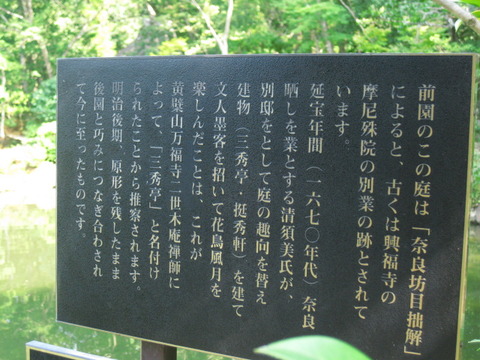 前園のこの庭は「奈良坊目拙解」
によると、古くは興福寺の
摩尼殊院の別業の跡とされて
います。
延宝年間（一六七〇年代）奈良
晒しを業とする清須美氏が、
別邸をとして庭の趣向を替え
建物（三秀亭・挺秀軒）を建て
文人墨客を招いて花鳥風月を
楽しんだことは、これが
黄檗山万福寺二世木庵禅師に
よって、「三秀亭」と名付け
られたことから推察されます。
明治後期、原形を残したまま
後園と巧みにつなぎ合わされ
て今に至ったものです。